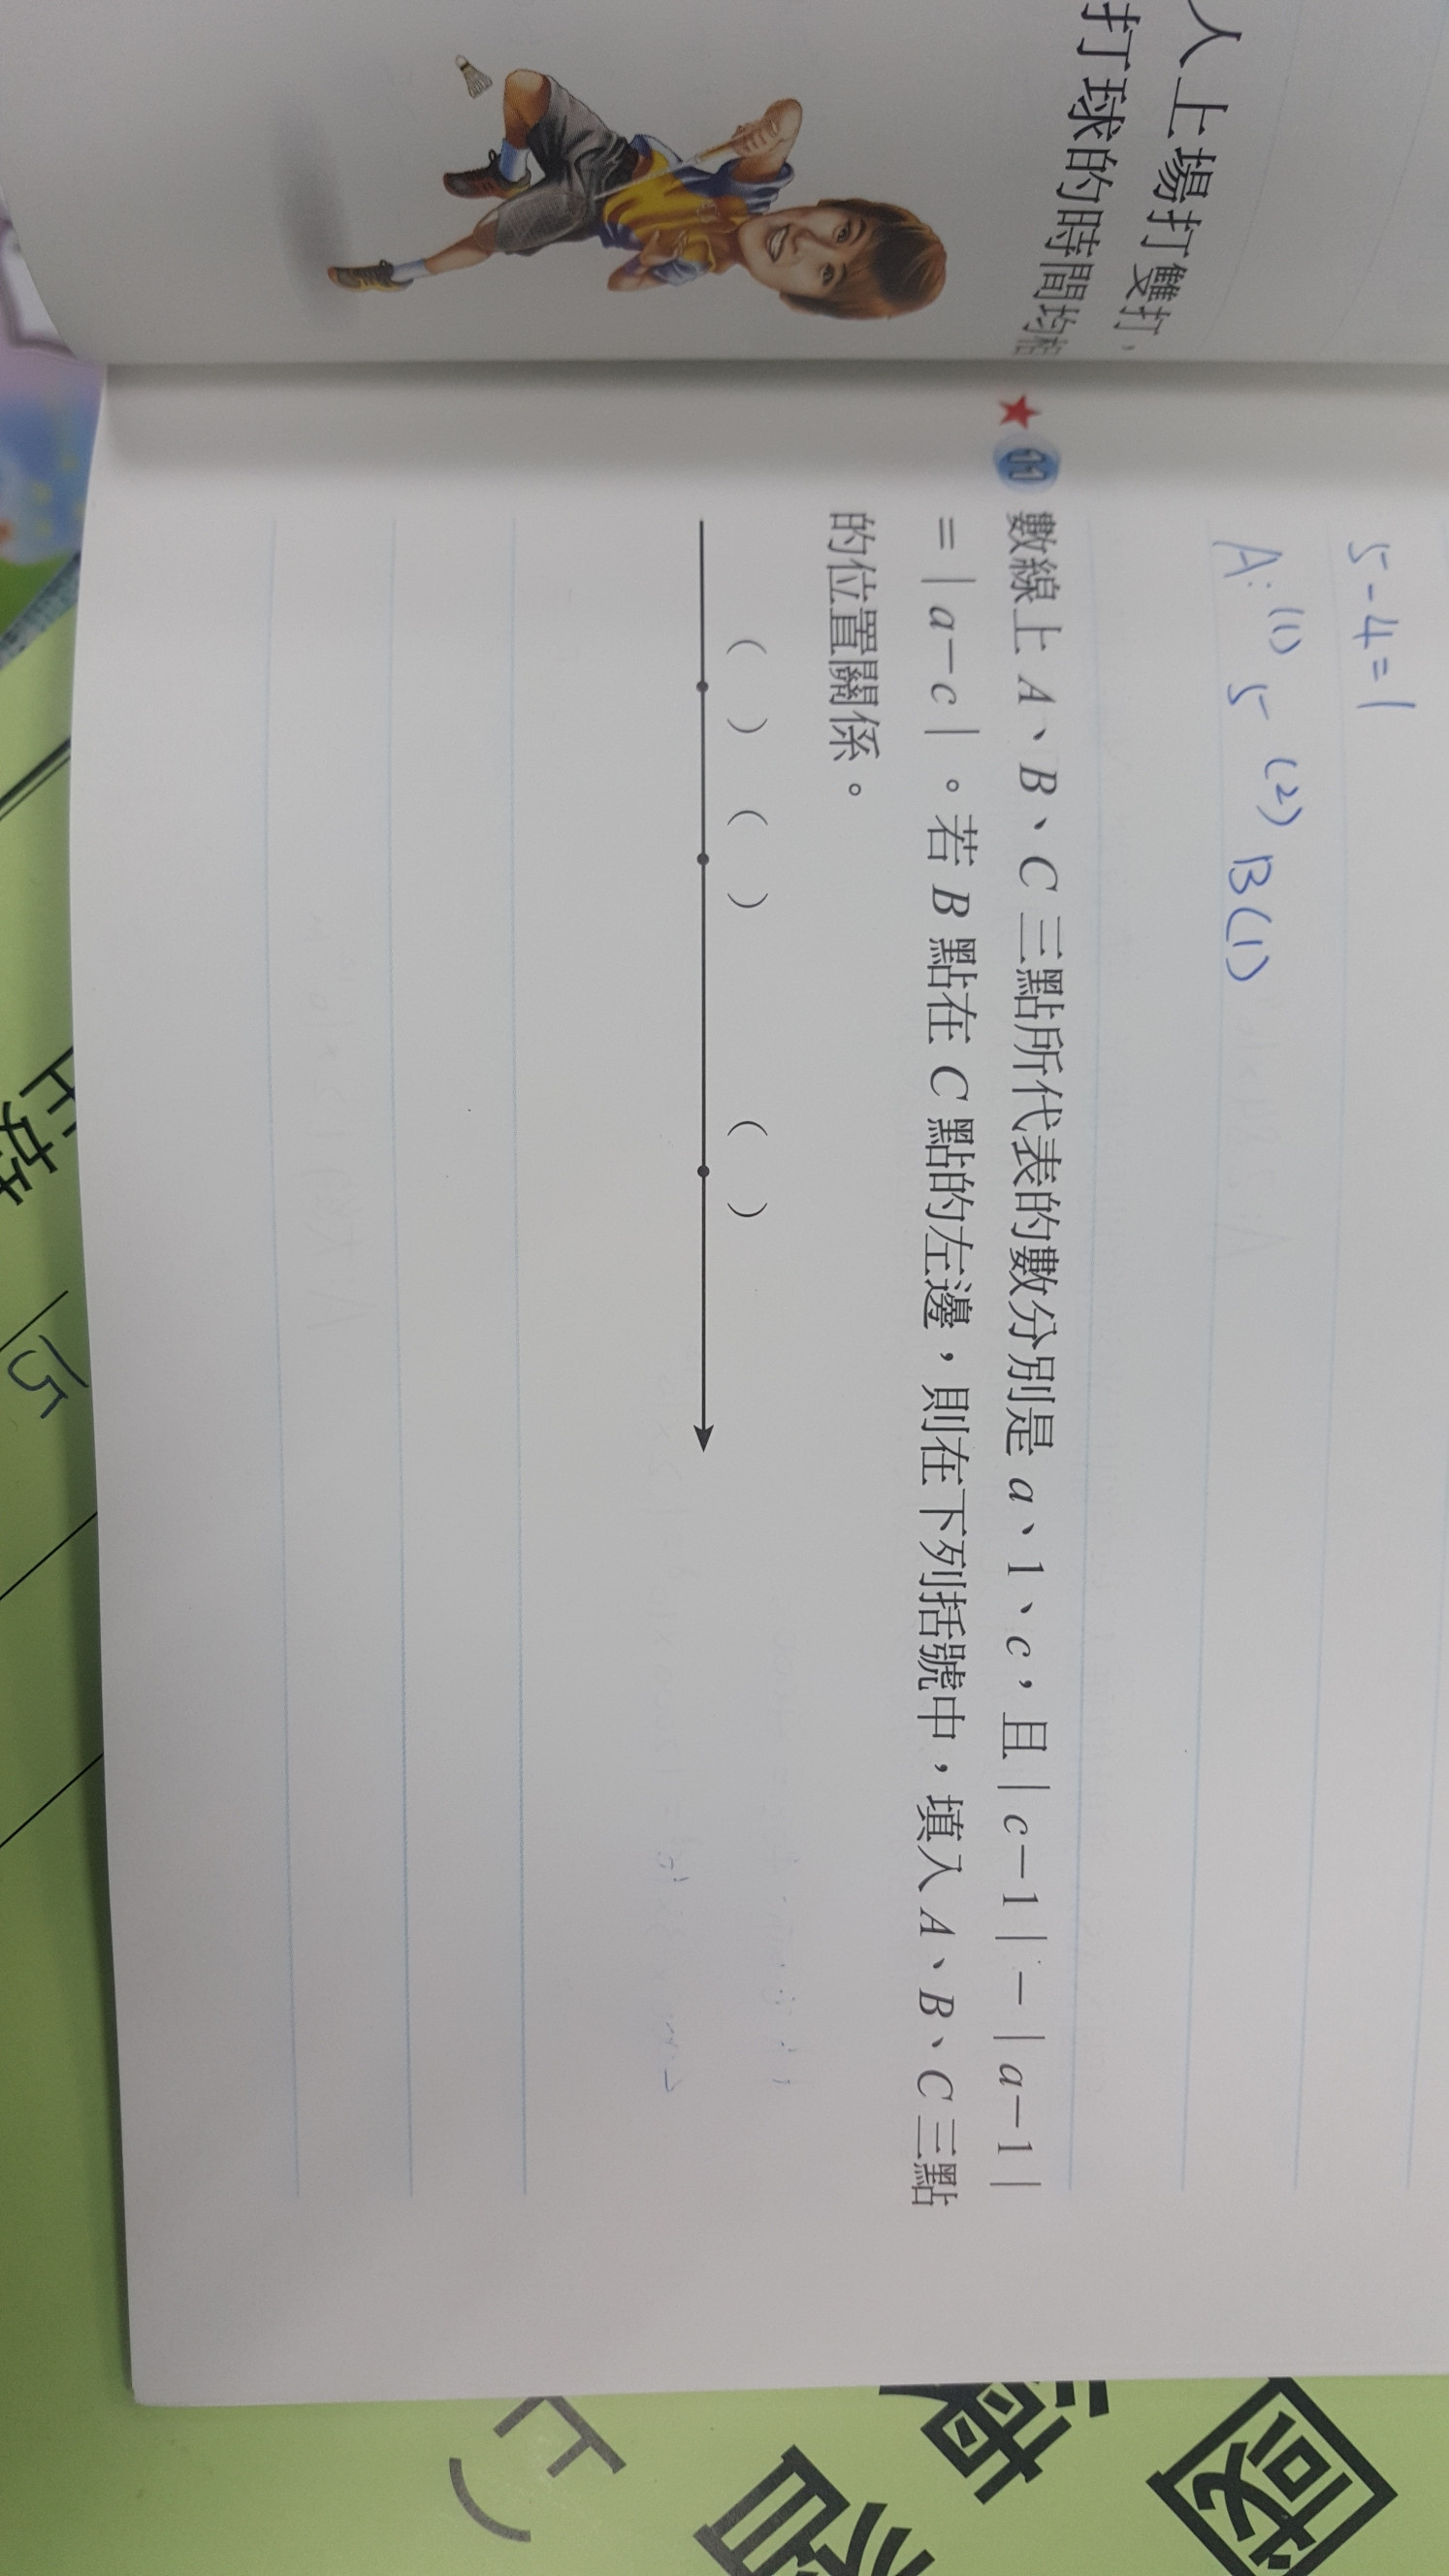 人上場打雙打，
打球的時間均相
5-4=1
A: (1) 5 (2) B(1)
★ 11 數線上 A、B、C 三點所代表的數分別是 a、1、c，且 | c－1 | － | a－1 |
＝ | a－c | 。若 B 點在 C 點的左邊，則在下列括號中，填入 A、B、C 三點
的位置關係。
（ ） （ ） （ ）
國
習
15